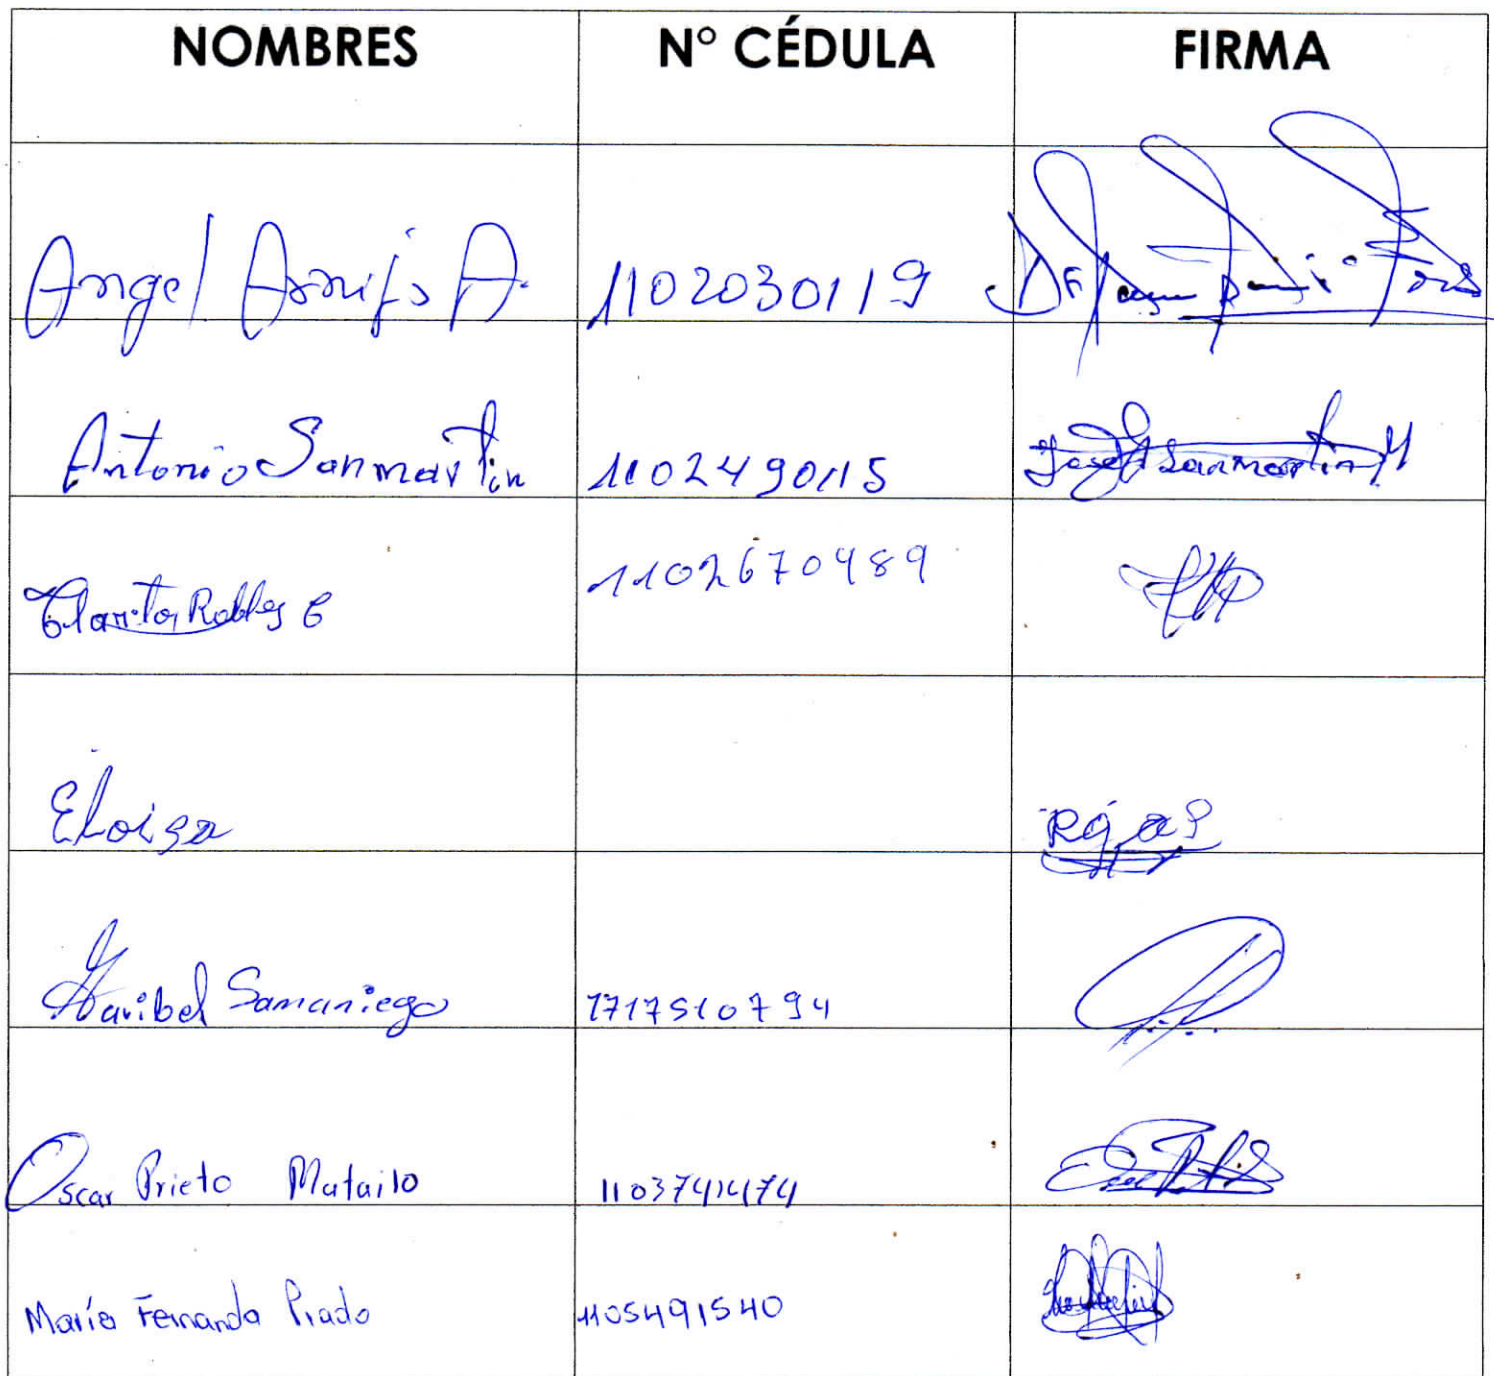 NOMBRES N° CÉDULA FIRMA
Angel Armijo A. 1102030119
Antonio Sanmartin 1102490115 Jose A Sanmartin M
Clarita Robles C 1102670489
Eloisa
Maribel Samaniego 1717510794
Oscar Prieto Matailo
María Fernanda Prado 1105491540